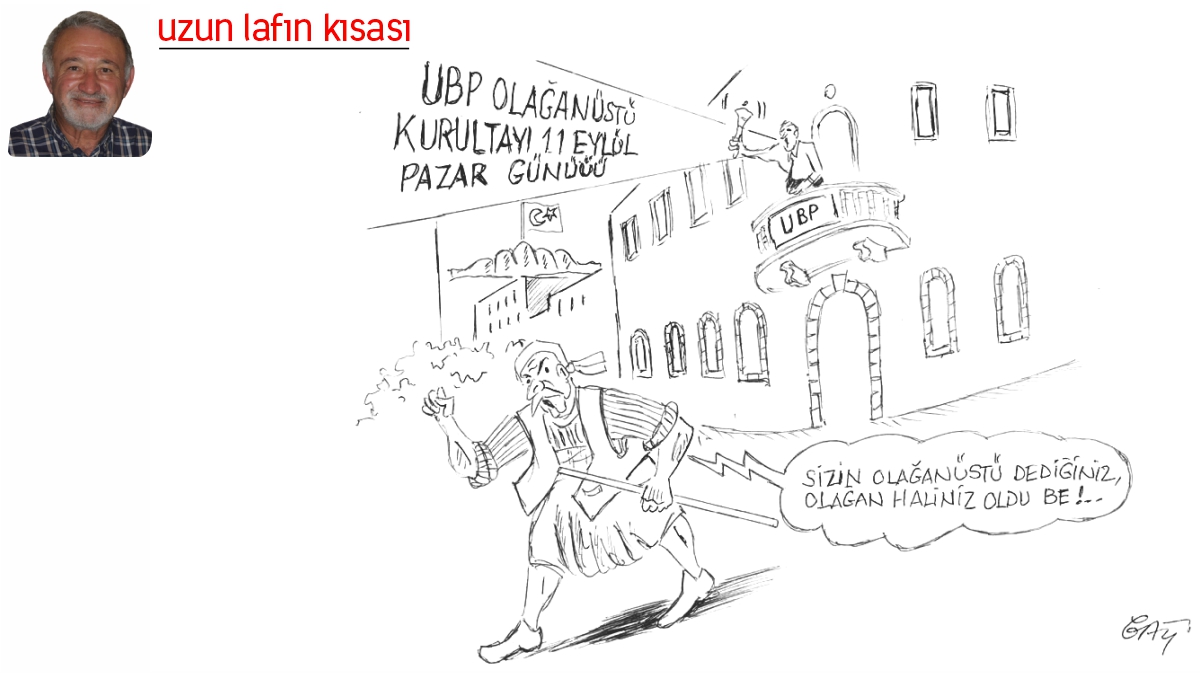 uzun lafın kısası
UBP OLAĞANÜSTÜ
KURULTAYI 11 EYLÜL
PAZAR GÜNÜÜÜ
UBP
SİZİN OLAĞANÜSTÜ DEDİĞİNİZ,
OLAĞAN HALİNİZ OLDU BE!...